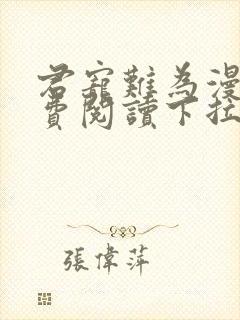 君寵難為漫
費閱讀下拉
張偉萍